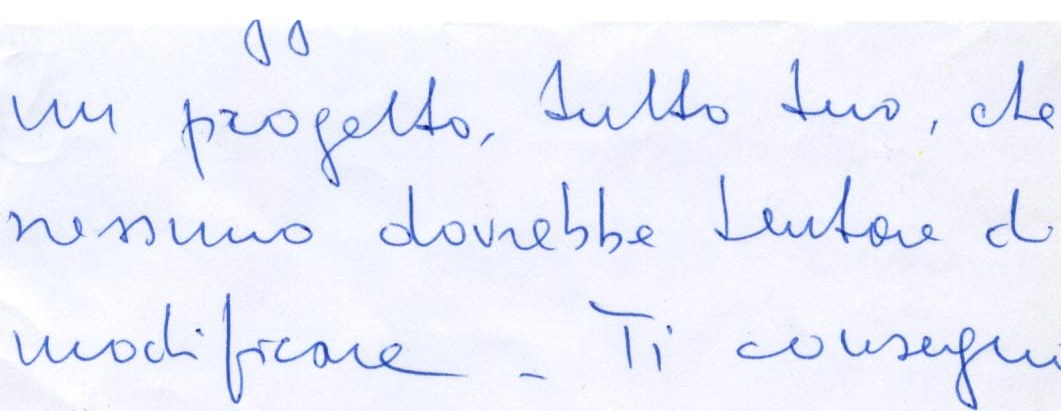 un progetto, tutto tuo, che
nessuno dovrebbe tentare d
modificare - Ti consegni